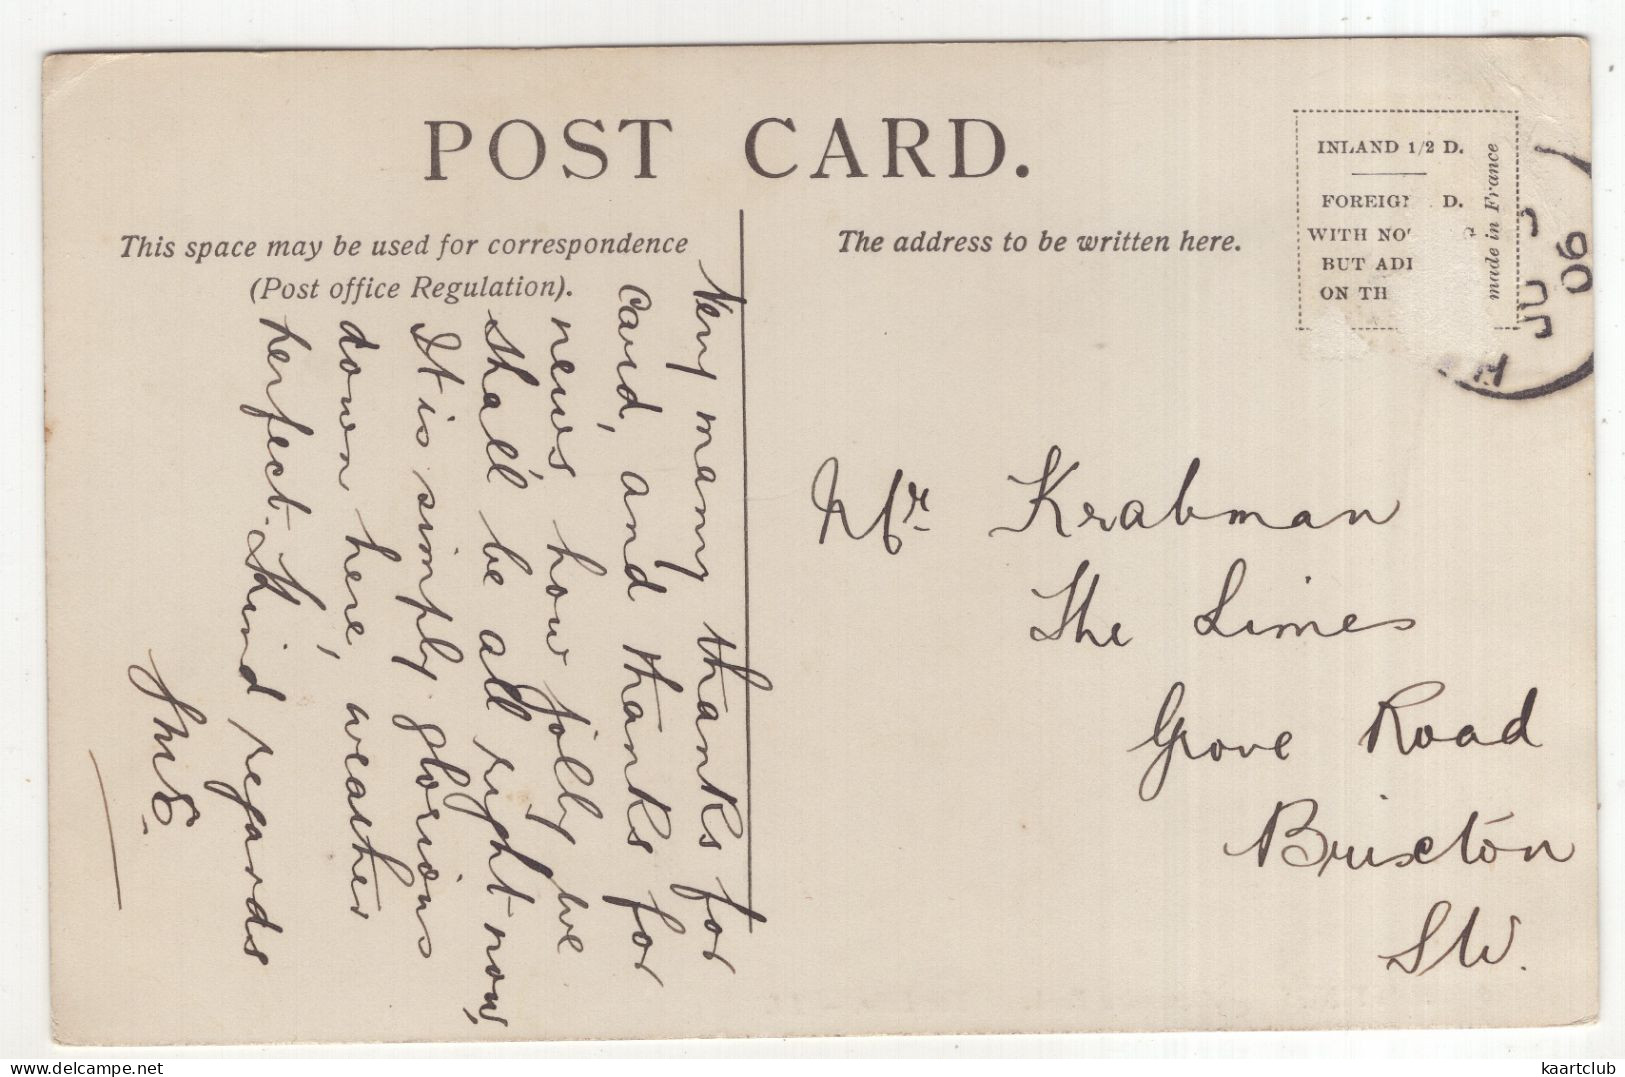 POST CARD.
This space may be used for correspondence
(Post office Regulation).
The address to be written here.
INLAND 1/2 D.
FOREIG D.
WITH NO G
BUT AD
ON TH
made in France
JU
06
Very many thanks for
card, and thanks for
news, how jolly we
shall be all right now,
It is simply glorious
down here, weather
perfect. Kind regards
Mr. Krabman
The Limes
Grove Road
Brixton
S.W.
www.delcampe.net
kaartclub